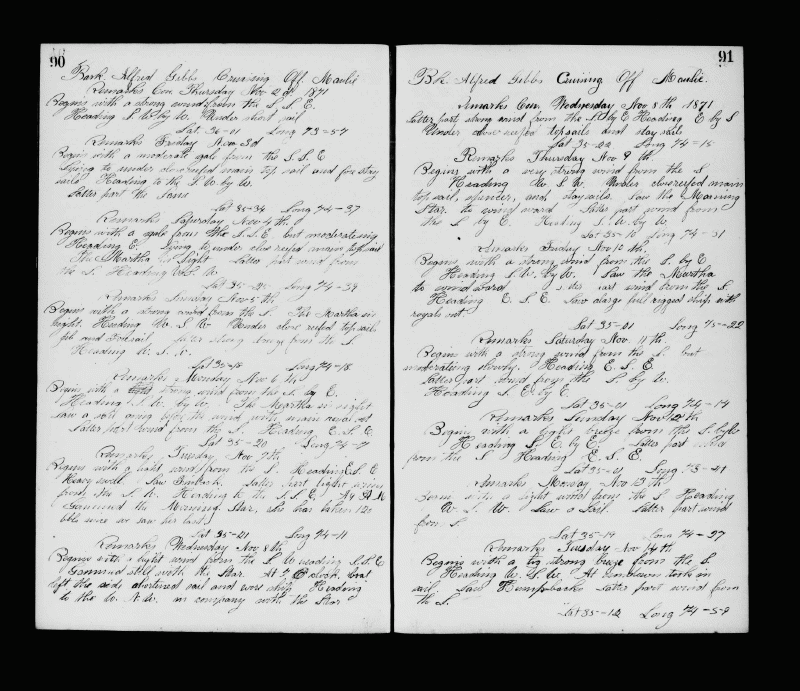 90
Bark Alfred Gibbs Cruising Off Maulie
Remarks Con. Thursday Nov 2d 1871
Begins with a strong wind from the S. S. E.
Heading S. W. by W. Under short sail
Lat 36-01 Long 73-57
Remarks Friday Nov 3d
Begins with a moderate gale from the S. S. E
Lying to under close reefed main top sail and for stay
sails Heading to the S. W. by W.
Latter part the same
Lat 35-34 Long 74-37
Remarks Saturday Nov 4th
Begins with a gale from the S. S. E but moderateing
Heading E. Lying to under close reefed main top sail
the Martha in Sight Latter part wind from
the S. Heading W. S. W
Lat 35-20 Long 74-39
Remarks Sunday Nov 5th
Begins with a strong wind from the S. The Martha in
sight. Heading W. S. W Under close reefed top sails
jib and Foresail Latter strong breeze from the S.
Heading W. S. W.
Lat 35-18 Long 74-18
Remarks Monday Nov 6th
Begins with a strong wind from the S. by E.
Heading S. W. by W. The Martha in sight
saw a sail going before the wind with main royal set
Latter part wind from the S. Heading E. S. E.
Lat 35-20 Long 74-7
Remarks Tuesday, Nov 7th
Begins with a light wind from the S. Heading E. S. E
Heavy swell. Saw Finback. Latter part light wind
from the S. W. Heading to the S. S. E. At A. M.
Gammed the Morning Star, she has taken 120
bbls since we saw her last
Lat 35-21 Long 74-11
Remarks Wednesday Nov 8th
Begins with a light wind from the S. W heading S. S. E
Gammed still with the Star. At 5 Oclock, boat
left the side shortened sail and wore ship Heading
to the W. N. W. in company with the Star
91
Bk. Alfred Gibbs Cruising Off Maulie.
Remarks Con. Wednesday Nov 8th 1871
Latter part strong wind from the S. by E Heading E by S
Under close reefed topsails and stay sails
Lat 35-22 Long 74-15
Remarks Thursday Nov 9th.
Begins with a very strong wind from the S
Heading W. S. W. Under close reefed main
top sail, spencer, and staysails. Saw the Morning
Star. to wind ward Latter part wind from
the S by E. Heading S. W. by W.
Lat 35-10 Long 74-31
Remarks Friday Nov 10th.
Begins with a strong wind from the S. by E
Heading S. W. By W. Saw the Martha
to wind ward Latter part wind from the S.
Heading E. S. E. Saw a large full rigged ship with
royals set.
Lat 35-01 Long 75-22
Remarks Saturday Nov. 11th.
Begins with a strong wind from the S. but
moderateing slowly. Heading E. S. E.
Latter part wind from the S. by W.
Heading S. E by E
Lat 35-21 Long 74-14
Remarks Sunday Nov 12th
Begins with a light breeze from the S. by E
Heading S. E. by E. Latter part wind
from the S Heading E. S. E.
Lat 35-01 Long 73-41
Remarks Monday Nov 13th
Begins with a light wind from the S Heading
W. S. W. Saw a Sail. Latter part wind
from S.
Lat 35-19 Long 74-37
Remarks Tuesday Nov 14th
Begins with a strong breeze from the S.
Heading W. S. W. At Sundown took in
sail. Saw Humpbacks Latter part wind from
the S.
Lat 35-12 Long 74-59